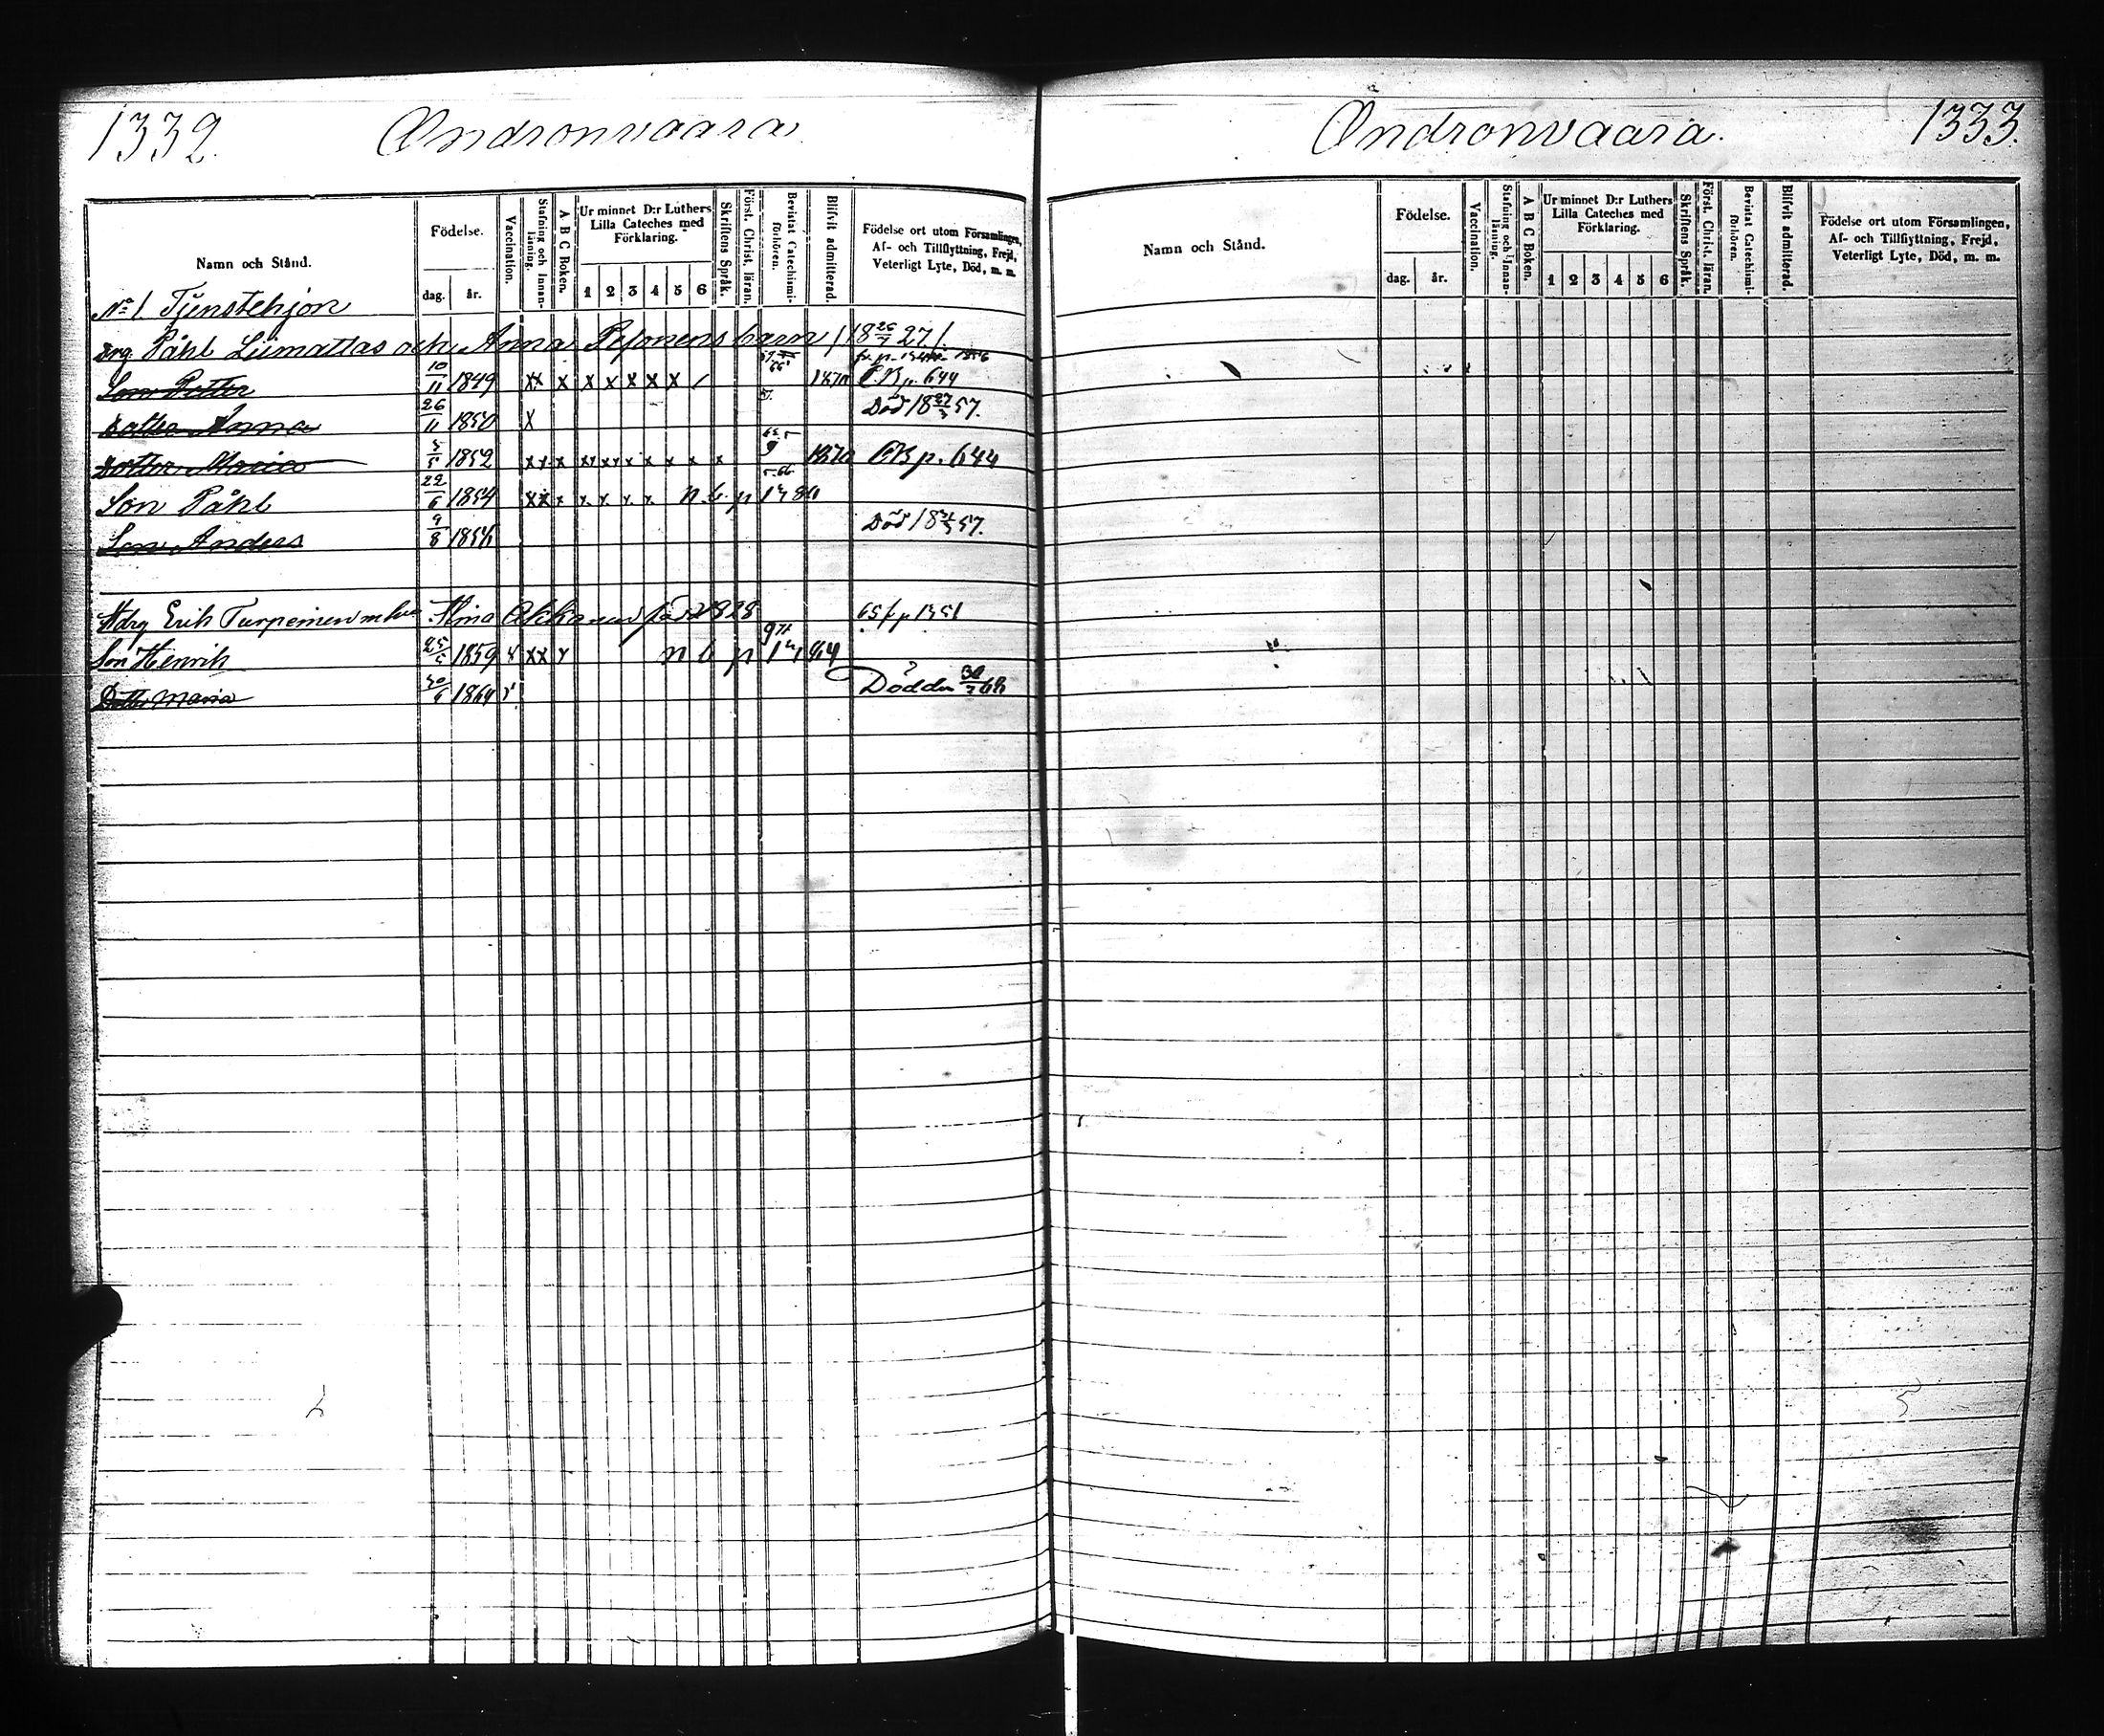 1332. Ondronvaara
Namn och Stånd.
Födelse.
dag. år.
Vaccination.
Stafning och Innan-läsning.
A B C Boken.
Ur minnet D:r Luthers Lilla Cateches med Förklaring.
1 2 3 4 5 6
Skriftens Språk.
Först. Christ. läran.
Bevistat Catechismi-förhören.
Blifvit admitterad.
Födelse ort utom Församlingen, Af- och Tillflyttning, Frejd, Veterligt Lyte, Död, m. m.
No 1. Tjenstehjon
Drg. Påhl Liimattas och Anna Pesonens barn /18 26/7 27/.
Son Petter 10/11 1849 xx x x x x x x / 1870 CB p. 644
Dotter Anna 26/11 1850 x Död 18 27/3 57.
Dotter Maria 5/5 1852 xx x xx xx x x x x x 1870 CB p. 644
Son Påhl 22/6 1854 xx x x x x x n. b. p
Son Anders 9/8 1856 Död 18 57.
Erik Turpeinen född 1828 65 f p 1351
Son Henrik 25/5 1859 x xx x n b p
Dotter Maria 30/6 1864 v Död den 30/7 68
Ondronvaara. 1333.
Namn och Stånd.
Födelse.
dag. år.
Vaccination.
Stafning och Innan-läsning.
A B C Boken.
Ur minnet D:r Luthers Lilla Cateches med Förklaring.
1 2 3 4 5 6
Skriftens Språk.
Först. Christ. läran.
Bevistat Catechismi-förhören.
Blifvit admitterad.
Födelse ort utom Församlingen, Af- och Tillflyttning, Frejd, Veterligt Lyte, Död, m. m.